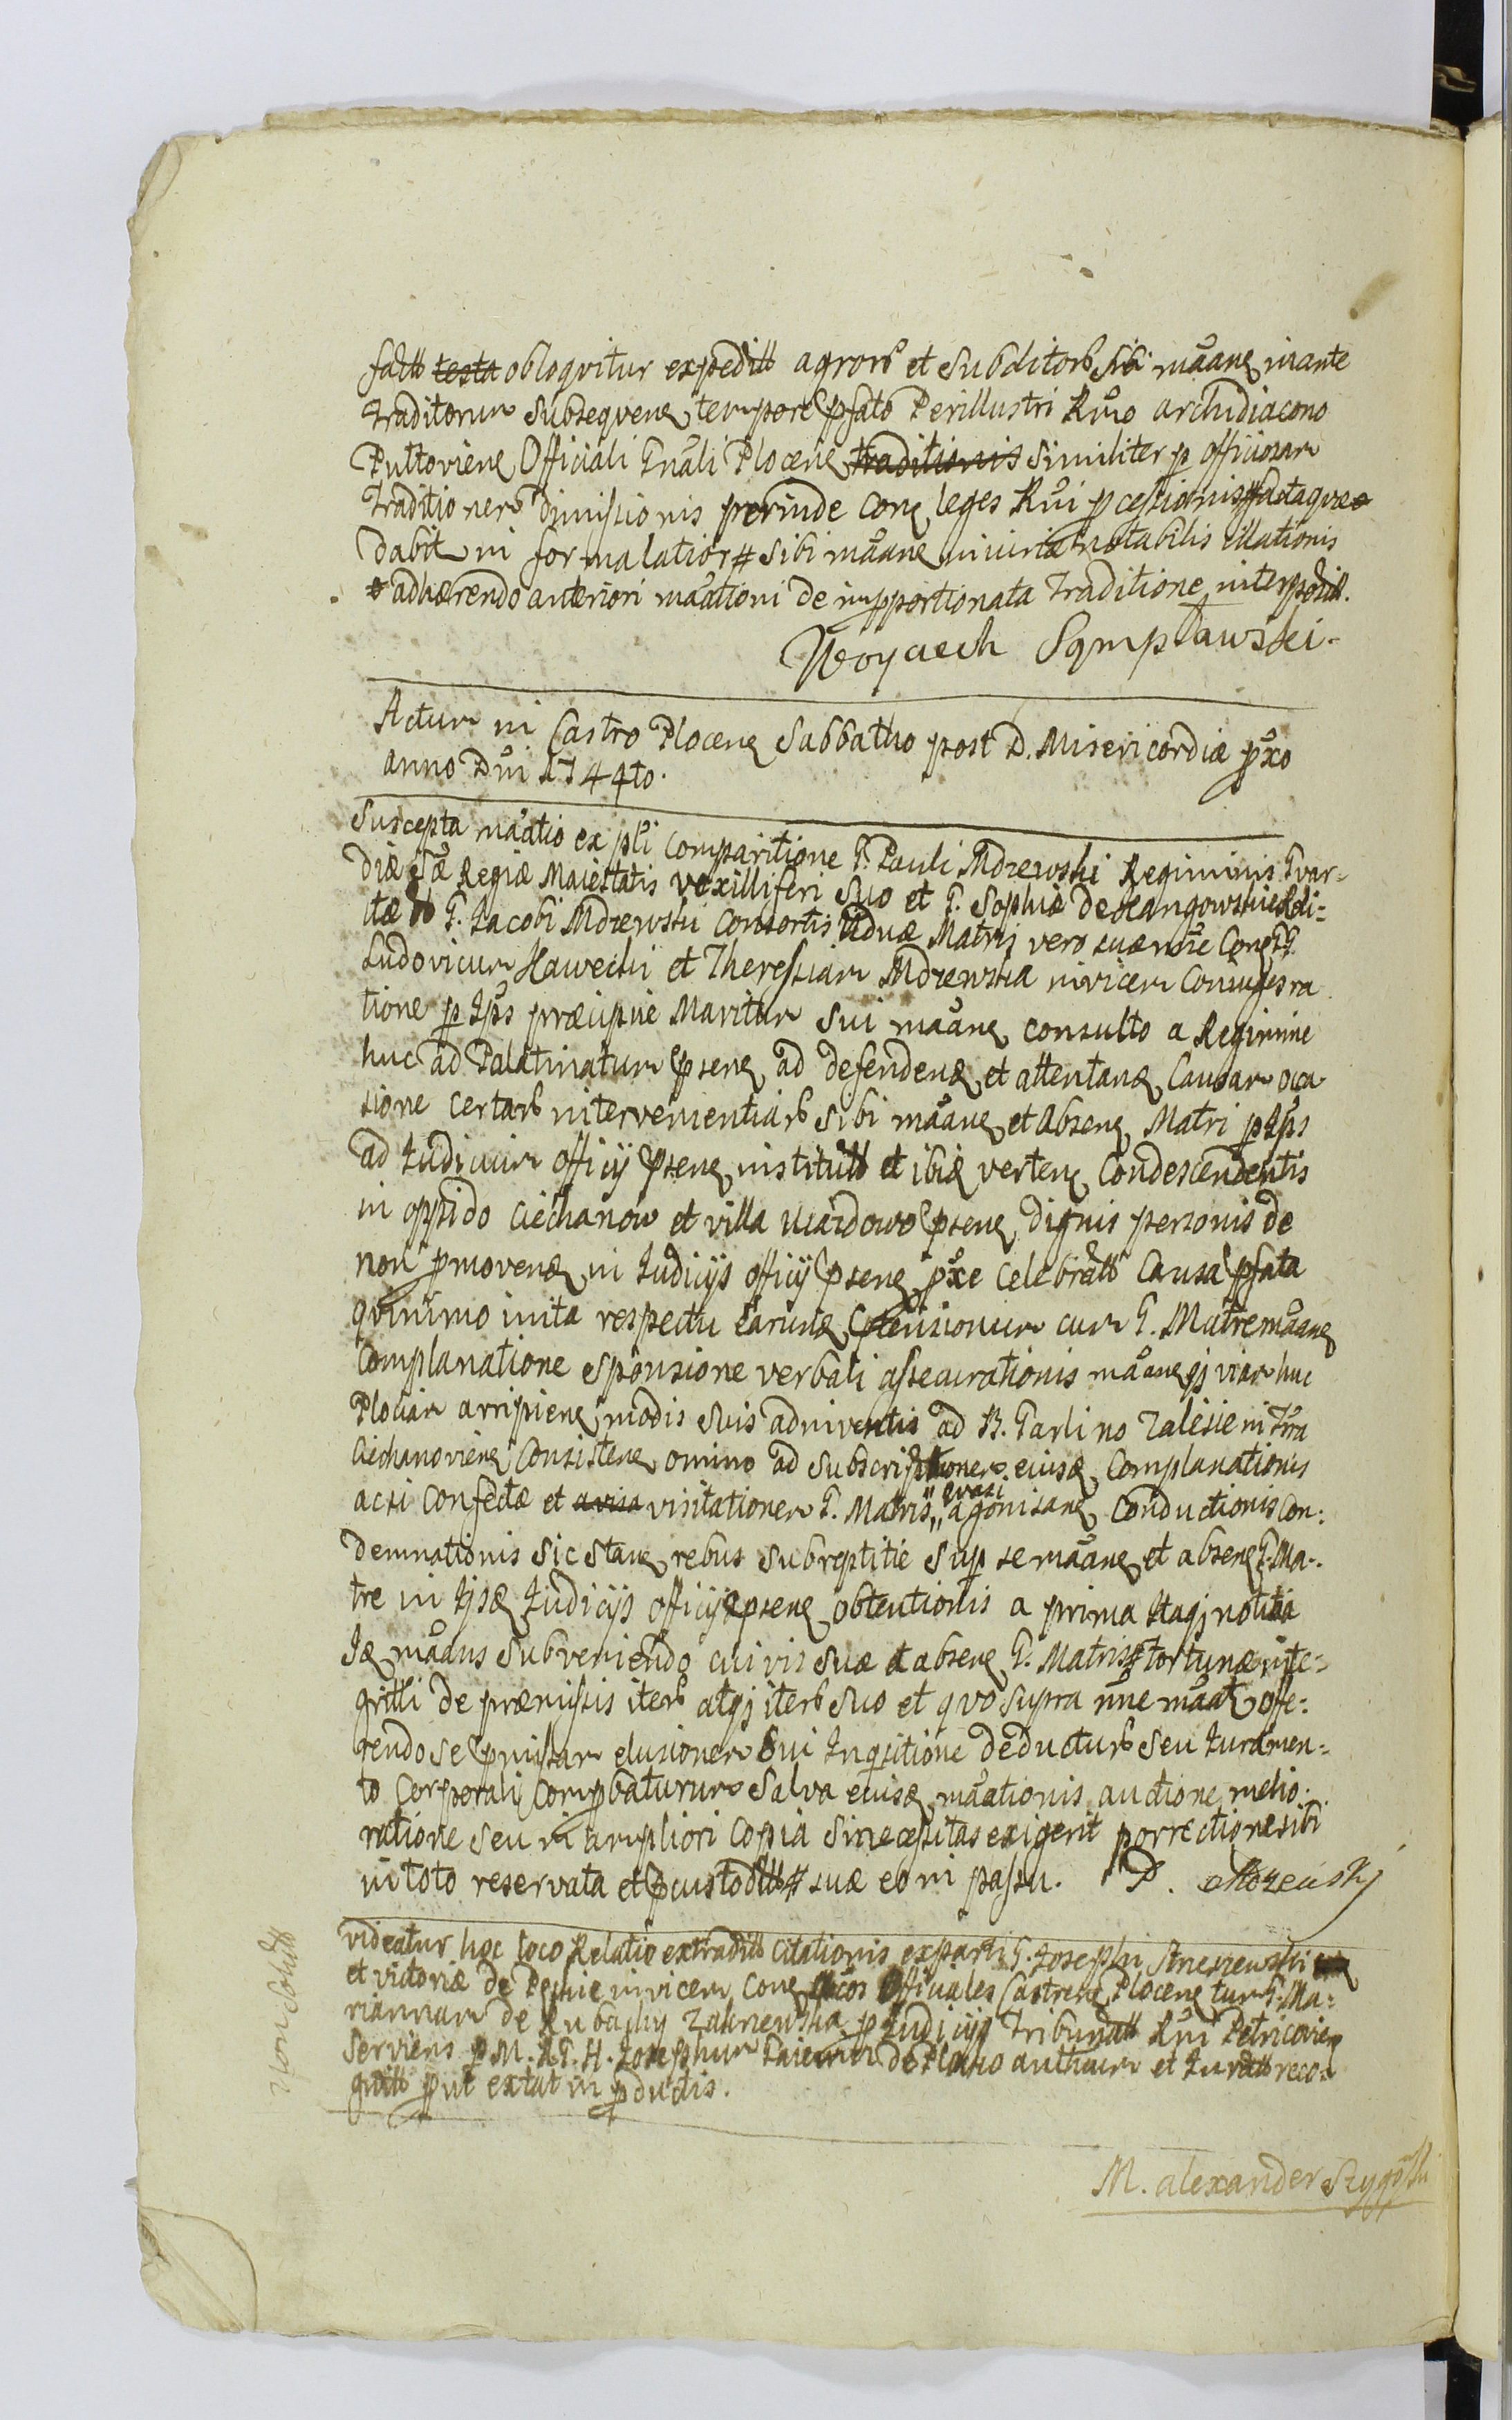 factt testa obloqvitur expeditt agrorb et Subditorb sibi mãane mante
traditorum Subseqvene tempore pfato Perillustri Rmo archidiacono
Pultoviene Officiali Gnãli Plocene traditionis Similiter p officiosam
traditionem dimissionis perinde cone leges Rni pcessionis factaqve
dabit in forma latiori sibi mãane iniuria notabilis illationis
adhærendo anteriori mãationi de improportionata traditione interpoitt.
Woyciech Sęmpławski
Actum in Castro Plocene Sabbatho post D. Misericordiæ pxo
anno Dni 1744to.
Suscepta mãatio ex pti comparitione G. Pauli Mdzewski Regiminis Gvar-
diæ Sæ Regiæ Maiestatis vexilliferi Suo et G. Sophiæ de Xangowskie Reli-
ctæ G. Jacobi Mdzewski Consortis Viduæ Matris vero suæ nne Cone GG
Ludovicum Hawecki et Theressiam Mdzewska invicem Coniuges ra
tione p Ipõs præcipue Maritum Sui mãane consulto a Regimine
huc ad Palatinatum psene ad defendene et attentane Causam oca
sione certarb intervenientiarb Sibi mãane et absene Matri p Ipõs
ad Iudicium officij psene institutt et ibid vertene Condescendentis
in oppido Ciechanow et villa Uiazdowo psene dignis personis de
non pmovene in Iudicijs officij psene pxe celebratt Causa pfata
qvinimo inita respectu earund ptensionum cum G. Matre mãane
Complanatione Sponsione verbali assecurationis mãane qj viam huc
Plociam arripiene modis Suis adinventis ad B. Garlino Zalesie in Tra
Ciechanoviene Consistene omino ad Subscriptionem eiusd Complanationis
acsi confectæ et avisa visitationem G. Matris „qvasi agonisane Conductionis Con:
demnationis Sic Stane rebus Subreptitie Sup se mãane et absene G. Ma-
tre in Ijsd Iudicijs officij psene obtentionis a prima Staqj notitia
Id mãans Subveniendo cuivis Suæ et absene G. Matris fortunæ inte-
gritti de præmissis iterb atqj iterb Suo et qvo supra nne mãatr offe-
rendo se pmissam elusionem Sui Inqsitione deducturb Seu Iuramen-
to Corporali Compbaturum Salva eiusd mãationis auctione melio-
ratione Seu in ampliori Copia Si necessitas exigerit porrectione sibi
in toto reservata et pcustoditt suæ eo in passu. P. Mdzewskj
videatur hoc loco Relatio extraditt Citationis ex parti G. Josephi
et victoriæ de Pechie invicem Cone Officiales Castrene Plocene tum G. Ma-
riannam de Rubachy p Iudicijs Tribunatt Rni Petricovien
Serviens p M. R. G. H. Josephum de Plocko authicum et Iuratt reco-
gnitt put extat in pductis.
Non Solutt
M. alexander Szygoski